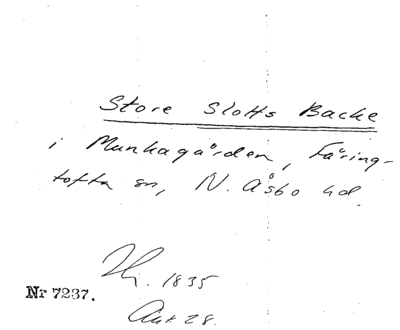 Store Slotts Backe
i Munkagården, Färing-
tofta sn, N. Åsbo hd.
1835
Nr 7237.
28.